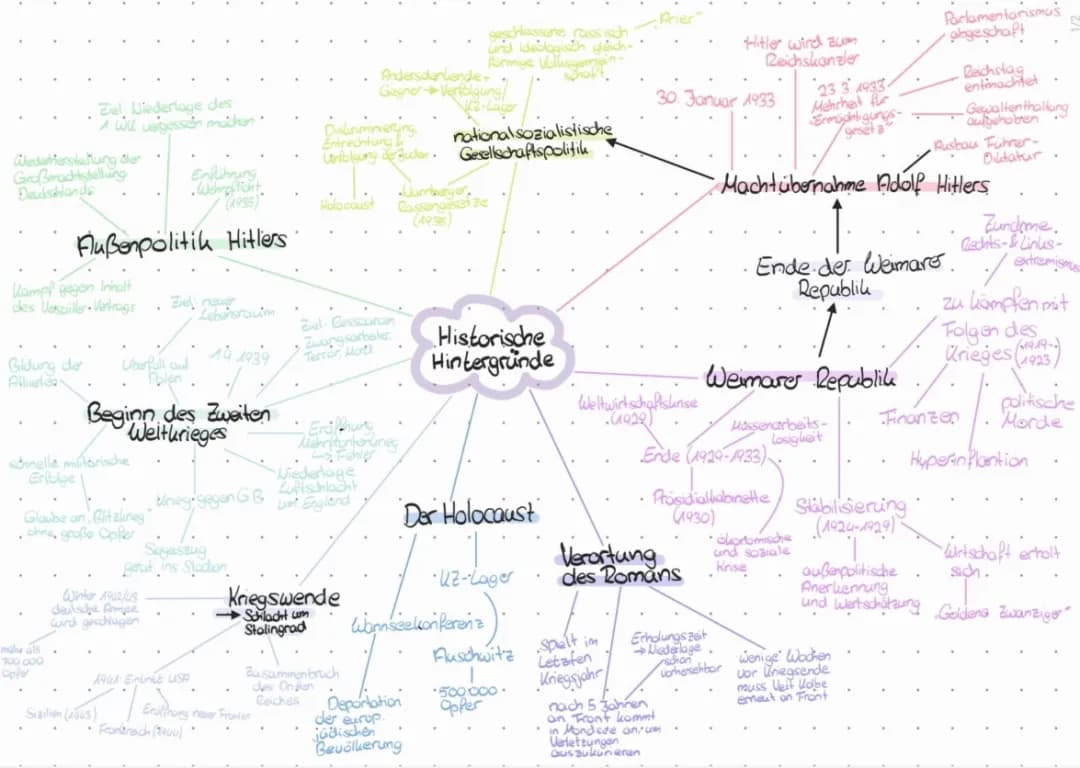 1/2
Historische
Hintergründe
nationalsozialistische
Gesellschaftspolitik
geschlossene rassisch
und ideologisch gleich-
förmige Volksgemein-
schaft
"Arier"
Andersdenkende +
Gegner → Verfolgung/
KZ-Lager
Diskriminierung,
Entrechtung &
Verfolgung der Juden
Holocaust
Nürnberger
Rassengesetze
(1935)
Machtübernahme Adolf Hitlers
30. Januar 1933
Hitler wird zum
Reichskanzler
23.3.1933
Mehrheit für
"Ermächtigungs-
gesetz"
Parlamentarismus
abgeschaft
Reichstag
entmachtet
Gewaltenthaltung
aufgehoben
Ausbau Führer-
Diktatur
Ende der Weimarer
Republik
Weimarer Republik
zu kämpfen mit
Folgen des
Krieges (1919-
1923)
Zunahme
Rechts- & Links-
extremismus
Finanzen
Hyperinflantion
politische
Morde
Stabilisierung
(1924-1929)
außenpolitische
Anerkennung
und Wertschätzung
Wirtschaft erholt
sich
"Goldene Zwanziger"
Ende (1929-1933)
Weltwirtschaftskrise
(1929)
Massenarbeits-
losigkeit
Präsidialkabinette
(1930)
ökonomische
und soziale
Krise
Verortung
des Romans
spielt im
letzten
Kriegsjahr
nach 5 Jahren
an Front kommt
in Mondsee an, um
Verletzungen
auszukurieren
Erholungszeit
→ Niederlage
schon
vorhersehbar
wenige Wochen
vor Kriegsende
muss Veit Kolbe
erneut an Front
Der Holocaust
KZ-Lager
Wannseekonferenz
Auschwitz
500.000
Opfer
Deportation
der europ.
jüdischen
Bevölkerung
Kriegswende
→ Schlacht um
Stalingrad
Winter 1942/43
deutsche Armee
wird geschlagen
mehr als
700 000
Opfer
1941 Eintritt USA
Sizilien (1943)
Frankreich (1944)
Eröffnung neuer Fronten
Zusammenbruch
des Dritten
Reiches
Beginn des Zweiten
Weltkrieges
Ziel: neuer
Lebensraum
Überfall auf
Polen
1.9.1939
Ziel: Ressourcen
Zwangsarbeiter,
Terror, Mord
Bildung der
Alliierten
schnelle militärische
Erfolge
Glaube an "Blitzkrieg"
ohne große Opfer
Krieg gegen GB
Siegeszug
gerät ins Stocken
Eröffnung
Mehrfrontenkrieg
↳ Fehler
Niederlage
Luftschlacht
um England
Außenpolitik Hitlers
Ziel: Niederlage des
1. WK vergessen machen
Wiederherstellung der
Großmachtstellung
Deutschlands
Einführung
Wehrpflicht
(1935)
Kampf gegen Inhalt
des Versailler Vertrags